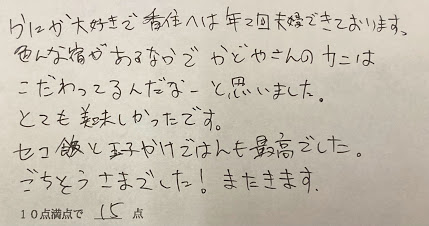 かにが大好きで香住へは年に2回夫婦できております。
色んな宿があるなかで かどやさんのカニは
こだわってるんだなーと思いました。
とても美味しかったです。
セコ飯と玉子かけごはんも最高でした。
ごちそうさまでした！またきます。
10点満点で 15 点